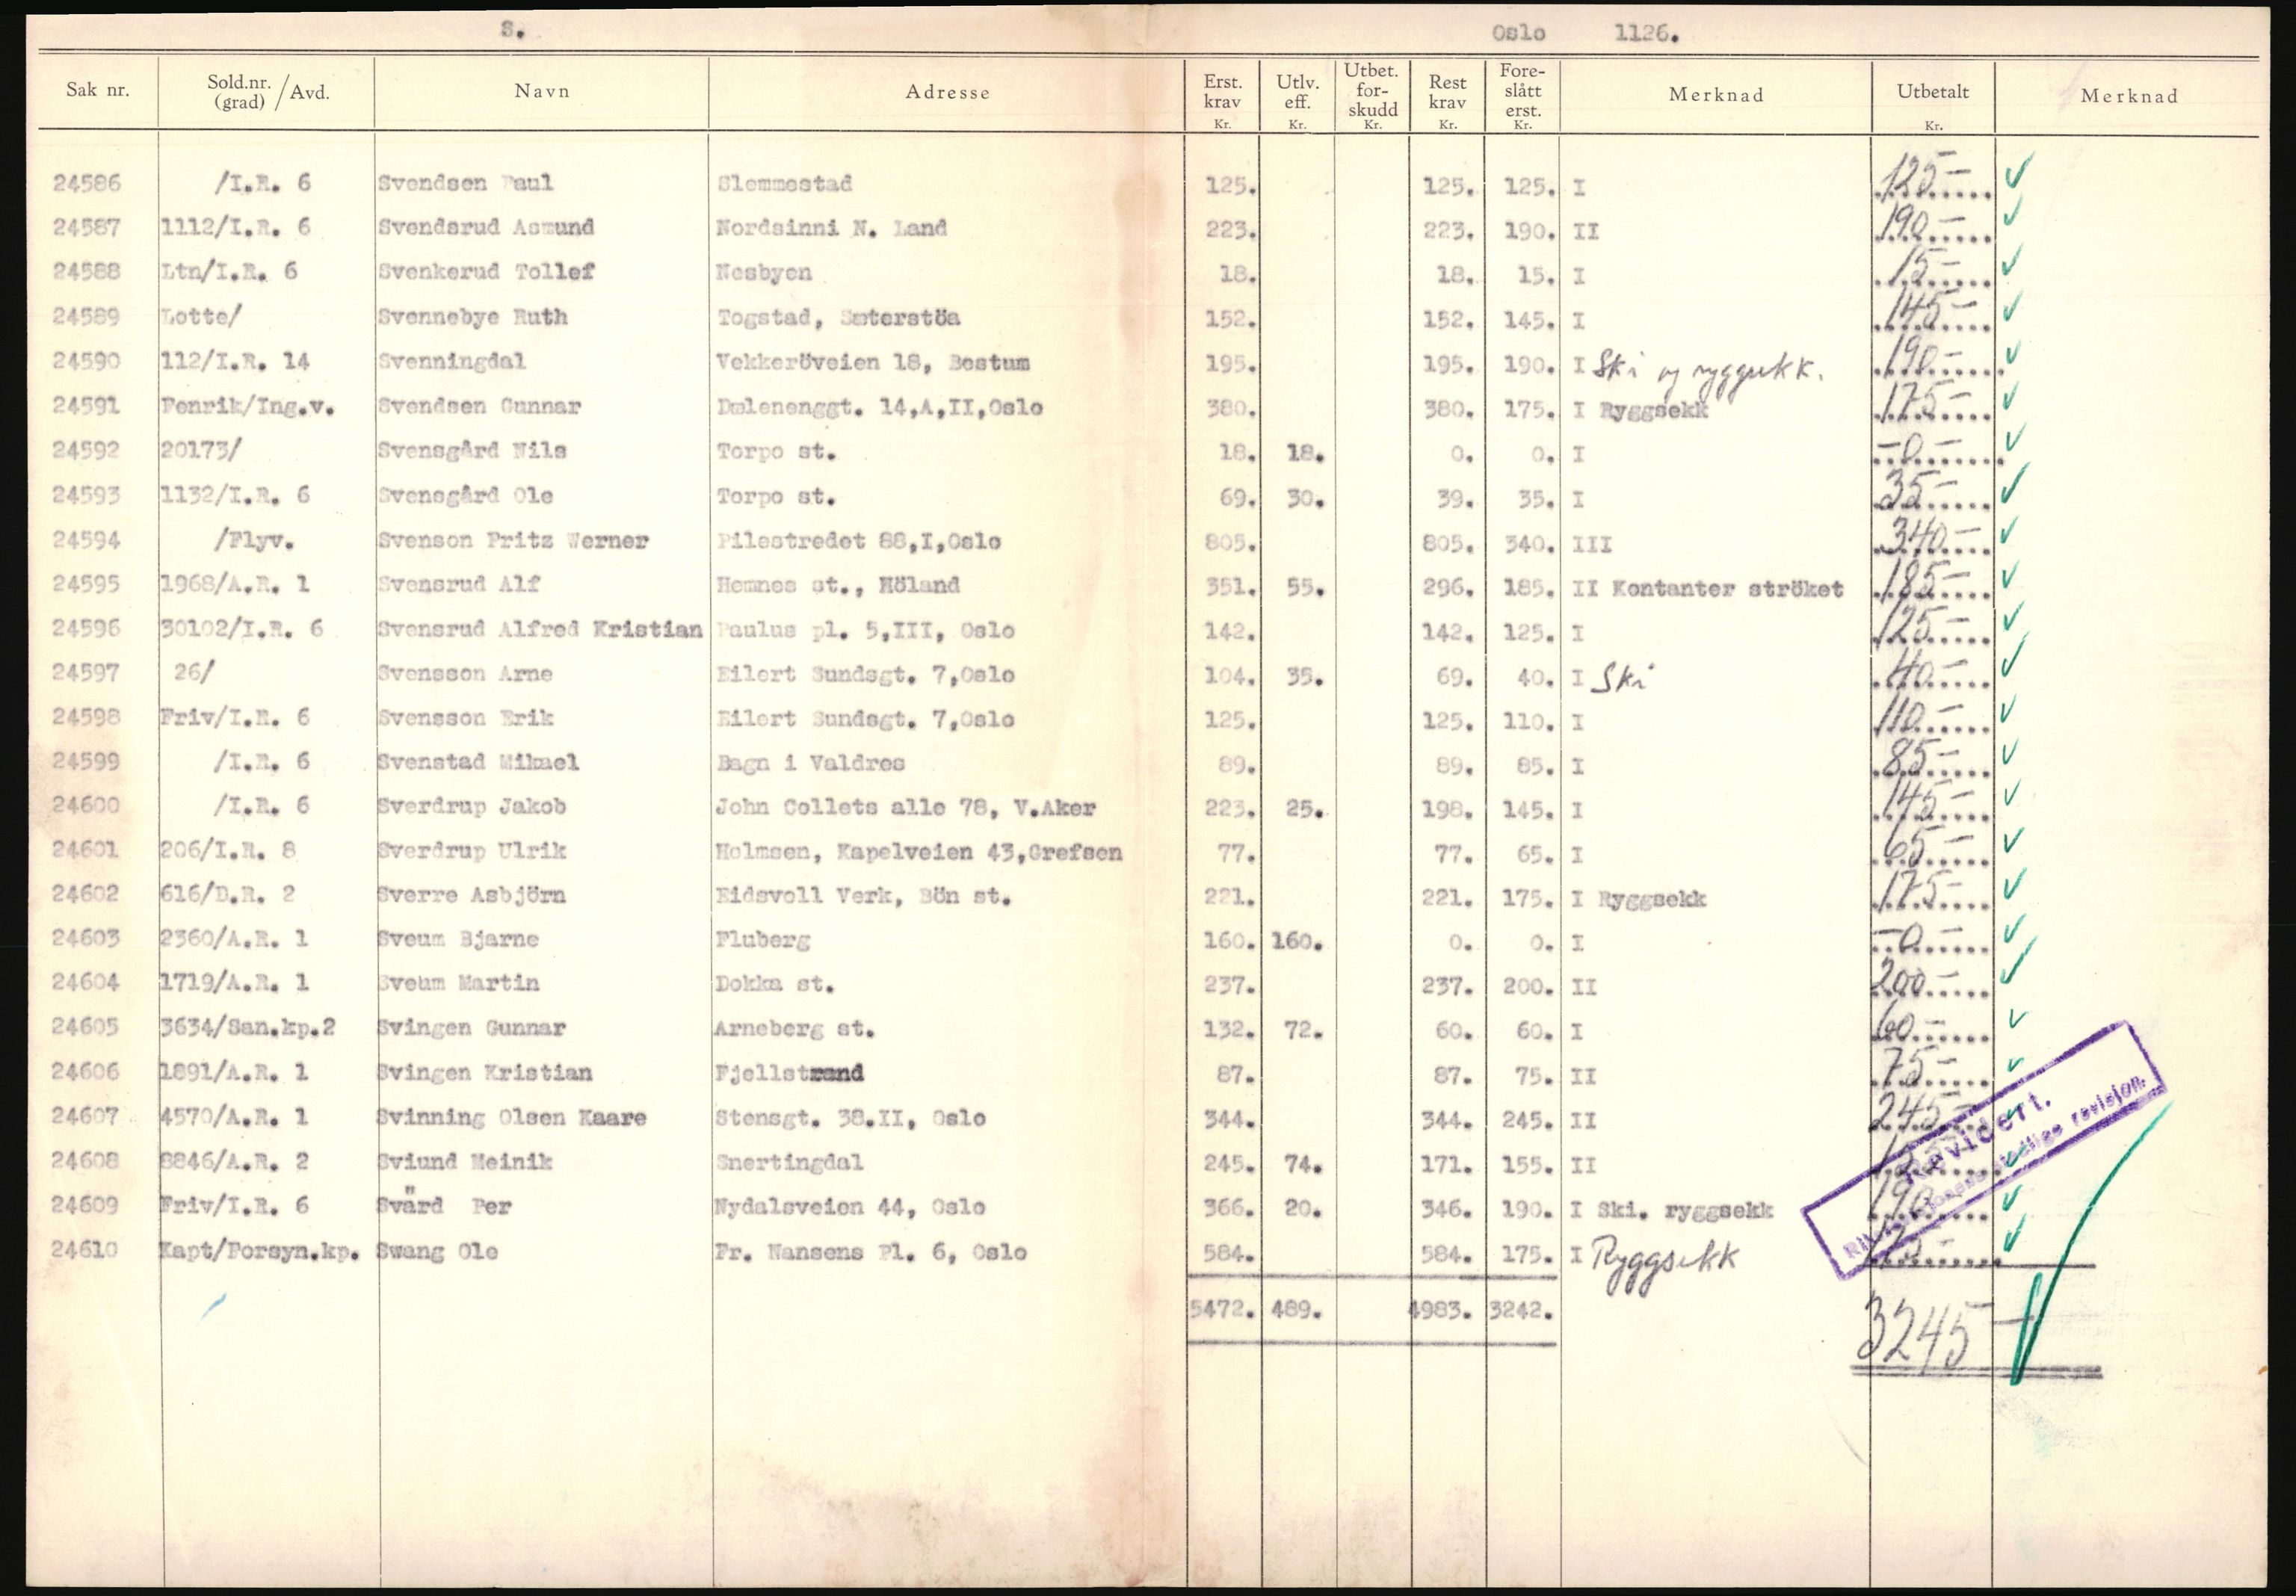 S. Oslo 1126.
Sak nr. Sold.nr. (grad) / Avd. Navn Adresse Erst. krav Kr. Utlv. eff. Kr. Utbet. for- skudd Kr. Rest krav Kr. Fore- slått erst. Kr. Merknad Utbetalt Kr. Merknad
24586 /I.R. 6 Svendsen Paul Slemmestad 125. 125. 125. I 125-
24587 1112/I.R. 6 Svendsrud Asmund Nordsinni N. Land 223. 223. 190. II 190-
24588 Ltn/I.R. 6 Svenkerud Tollef Nesbyen 18. 18. 15. I 15-
24589 Lotte/ Svennebye Ruth Togstad, Sæterstöa 152. 152. 145. I 145-
24590 112/I.R. 14 Svenningdal Vekkeröveien 18, Bestum 195. 195. 190. I Ski og ryggsekk. 190-
24591 Fenrik/Ing.v. Svendsen Gunnar Dælenenggt. 14,A,II,Oslo 380. 380. 175. I Ryggsekk 175-
24592 20173/ Svensgård Nils Torpo st. 18. 18. 0. 0. I -0-
24593 1132/I.R. 6 Svensgård Ole Torpo st. 69. 30. 39. 35. I 35-
24594 /Flyv. Svenson Fritz Werner Pilestredet 88,I,Oslo 805. 805. 340. III 340-
24595 1968/A.R. 1 Svensrud Alf Hemnes st., Höland 351. 55. 296. 185. II Kontanter ströket 185-
24596 30102/I.R. 6 Svensrud Alfred Kristian Paulus pl. 5,III, Oslo 142. 142. 125. I 125-
24597 26/ Svensson Arne Eilert Sundsgt. 7,Oslo 104. 35. 69. 40. I Ski 40-
24598 Friv/I.R. 6 Svensson Erik Eilert Sundsgt. 7,Oslo 125. 125. 110. I 110-
24599 /I.R. 6 Svenstad Mikael Bagn i Valdres 89. 89. 85. I 85-
24600 /I.R. 6 Sverdrup Jakob John Collets alle 78, V.Aker 223. 25. 198. 145. I 145-
24601 206/I.R. 8 Sverdrup Ulrik Holmsen, Kapelveien 43,Grefsen 77. 77. 65. I 65-
24602 616/D.R. 2 Sverre Asbjörn Eidsvoll Verk, Bön st. 221. 221. 175. I Ryggsekk 175-
24603 2360/A.R. 1 Sveum Bjarne Fluberg 160. 160. 0. 0. I -0-
24604 1719/A.R. 1 Sveum Martin Dokka st. 237. 237. 200. II 200-
24605 3634/San.kp.2 Svingen Gunnar Arneberg st. 132. 72. 60. 60. I 60-
24606 1891/A.R. 1 Svingen Kristian Fjellstrand 87. 87. 75. II 75-
24607 4570/A.R. 1 Svinning Olsen Kaare Stensgt. 38.II, Oslo 344. 344. 245. II 245-
24608 8846/A.R. 2 Sviund Meinik Snertingdal 245. 74. 171. 155. II
24609 Friv/I.R. 6 Svärd Per Nydalsveien 44, Oslo 366. 20. 346. 190. I Ski. ryggsekk 190
24610 Kapt/Forsyn.kp. Swang Ole Fr. Nansens Pl. 6, Oslo 584. 584. 175. I Ryggsekk
5472. 489. 4983. 3242. 3245-
Revidert.
revisjon.